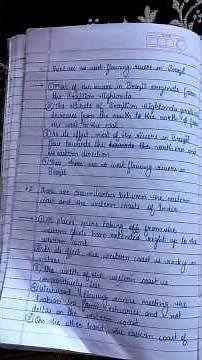 There are no west flowing rivers in Brazil
→ ① Most of the rivers in Brazil originate from
the Brazilian Highlands
② The altitude of Brazilian Highlands
decrease from the south to the north & from
the west to the east.
③ As its effect most of the rivers in Brazil
flow towards the towards the northern and
eastern direction
④ Thus there are no west flowing rivers in
Brazil
There are dissimilarities between the western
coast and the eastern coasts of India.
→ ① At places, spurs taking off from the
western ghats have extended right up to the
western land.
② As its effect the western coast is rocky in
nature.
③ The width of the western coast is
comparatively less
④ Westward flowing rivers meeting the
Arabian Sea form estuaries and not
deltas on the western coast.
⑤ On the other hand the eastern coast of